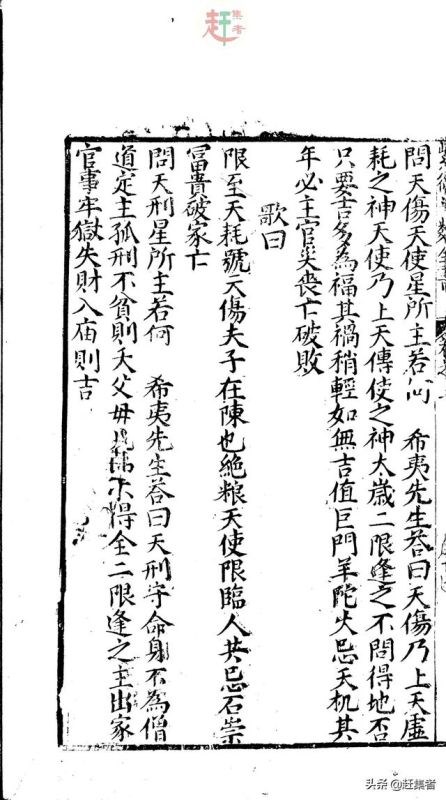 赶集者
問天傷天使星所主若何　希夷先生荅曰天傷乃上天虛
耗之神天使乃上天傳使之神太歲二限逢之不問得地否
只要吉多為福其禍稍輕如無吉值巨門羊陀火忌天机其
年必主官災喪亡破敗
歌曰
限至天耗號天傷夫子在陳也絶粮天使限臨人共忌石崇
富貴破家亡
問天刑星所主若何　希夷先生荅曰天刑守命身不為僧
道定主孤刑不貧則夭父母兄弟不得全二限逢之主出家
官事牢獄失財入庙則吉
头条 @赶集者